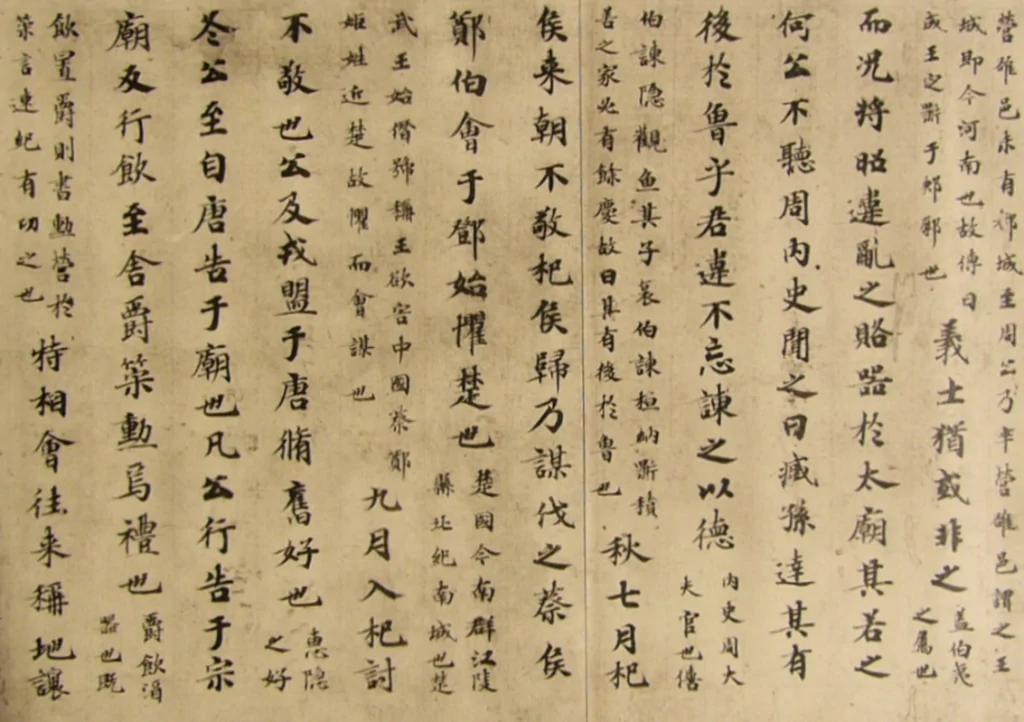 營雒邑未有都城至周公乃卒營雒邑謂之王
城即今河南也故傳曰
成王定鼎于郟鄏也
義士猶或非之
蓋伯夷
之属也
而況將昭違亂之賂器於太廟其若之
何公不聽周內史聞之曰臧孫達其有
後於魯乎君違不忘諫之以德
內史周大
夫官也僖
伯諫隠觀魚其子哀伯諫桓納鼎積
善之家必有餘慶故曰其有後於魯也
秋七月杞
侯来朝不敬杞侯歸乃謀伐之蔡侯
鄭伯會于鄧始懼楚也
楚國今南群江陵
縣北紀南城也楚
武王始僭號稱王欲害中國蔡鄭
姬姓近楚故懼而會謀也
九月入杞討
不敬也公及戎盟于唐脩舊好也
惠隠
之好
冬公至自唐告于廟也凡公行告于宗
廟反行飲至舍爵策勳焉禮也
爵飲酒
器也既
飲置爵則書勳營於
策言速紀有功之也
特相會往来稱地讓